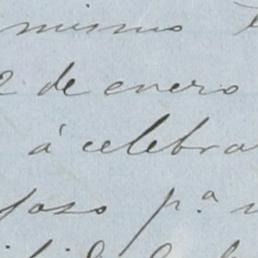 mismo
2 de enero
á celebra
paso p.ª